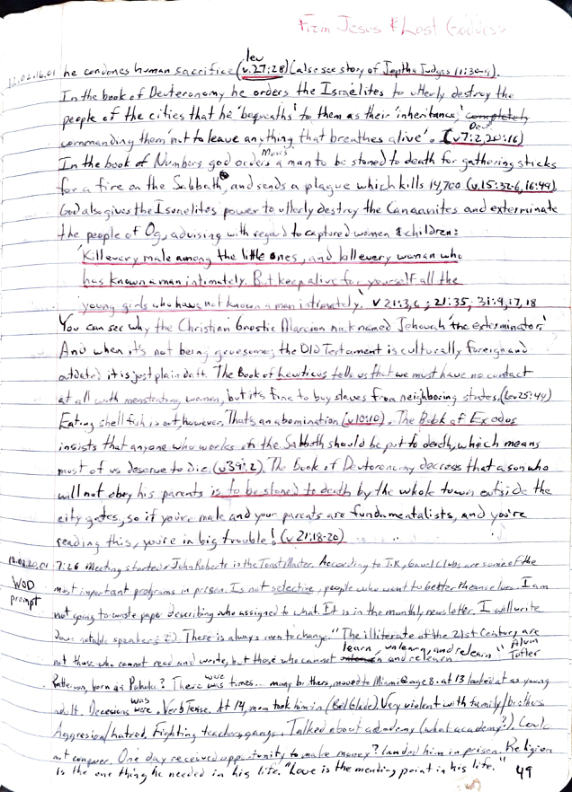 From Jesus & Lost Goddess
12.02.16.01 he condones human sacrifice (lev v.27:28) (also see story of Jeptha Judges 11:30-).
In the book of Deuteronomy he orders the Israelites to utterly destroy the
people of the cities that he 'bequeaths' to them as their 'inheritance,' completely
commanding them 'not to leave anything that breathes alive'. (Deu v7:2, 20:16)
In the book of Numbers god orders Moses a man to be stoned to death for gathering sticks
for a fire on the Sabbath, and sends a plague which kills 14,700 (v.15:32-6, 16:49).
God also gives the Israelites power to utterly destroy the Canaanites and exterminate
the people of Og, advising with regard to captured women & children:
'Kill every male among the little ones, and kill every woman who
has known a man intimately. But keep alive for yourself all the
young girls who have not known a man intimately.' v 21:3, ; 21:35, 31:9, 17, 18
You can see why the Christian Gnostic Marcion nick named Jehovah 'the exterminator'
And when it's not being gruesome, the Old Testament is culturally foreign and
outdated it is just plain daft. The Book of Leviticus tells us that we must have no contact
at all with menstrating women, but its fine to buy slaves from neighboring states. (Lev 25:44)
Eating shell fish is out, however. Thats an abomination (v10:10). The Book of Exodus
insists that anyone who works on the Sabbath should be put to death, which means
most of us deserve to die (v34:2). The book of Deuteronomy decrees that a son who
will not obey his parents is to be stoned to death by the whole town outside the
city gates, so if you're male and your parents are fundamentalists, and you're
reading this, you're in big trouble! (v 21:18-20)
7:26 Meeting started John Roberts is the Toast Master. According to J.R., Gavel Clubs are some of the
WOD prompt
most important programs in prison. Is not selective, people who want to better themselves. I am
not going to waste paper describing who assigned to what. It is in the monthly newsletter. I will write
down notable speakers. There is always men to change. "The illiterate of the 21st Century are
not those who cannot read and write, but those who cannot learn, unlearn, and relearn" Alvin Tofler
born as Pahokee? There were was times.. many brothers, moved to Miami @ age 8. at 13 looked at as young
adult. Decesions was were. Verb Tense. At 14, mom took him in (Bell Glade). Very violent with family/brothers
Aggresion/hatred. Fighting teachers, gangs. Talked about academy (what academy?). Could
not conquer. One day received opportunity to make money? landed him in prison. Religion
is the one thing he needed in his life. "Love is the mending point in his life."
49